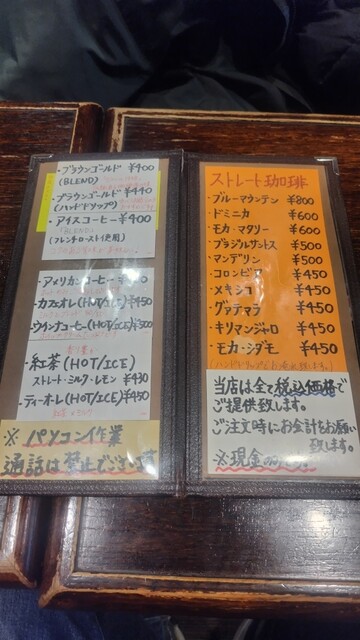 ・ブラウンゴールド ¥400
(BLEND)
・ブラウンゴールド ¥440
(ハンドドリップ)
・アイスコーヒー ¥400
(BLEND)
(フレンチロースト使用)
・アメリカンコーヒー
・カフェオレ(HOT/ICE) ¥450
・ウインナコーヒー(HOT/ICE) ¥500
・紅茶(HOT/ICE)
ストレート・ミルク・レモン ¥430
・ティーオレ(HOT/ICE) ¥450
※ パソコン作業
通話は禁止です
ストレート珈琲
・ブルーマウンテン ¥800
・ドミニカ ¥600
・モカ・マタリー ¥600
・ブラジルサントス ¥500
・マンデリン ¥500
・コロンビア ¥450
・メキシコ ¥450
・グァテマラ ¥450
・キリマンジャロ ¥450
・モカ・シダモ ¥450
当店は全て税込価格で
ご提供致します。
ご注文時にお会計をお願い
致します。
※現金のみ